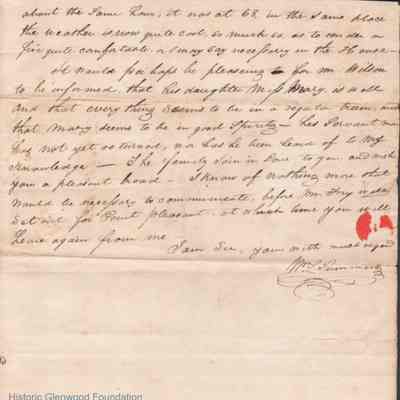 about the same hour, it was at 68 in the same place
the weather is now quite cool, so much so, as to render a
fire quite comfortable, & may say necessary in the House —
it would perhaps be pleasing for Mr Wilson
to be informed, that his daughter Miss Mary, is well
and that every thing seems to be in a regular train, and
that Mary seems to be in good Spirits — his Servant man
has not yet returned, nor has he been heard of to my
Knowledge — The family Join in love to you and wish
you a pleasant — I know of nothing more that
would be necessary to communicate, before Mr Fry
Set out for Point pleasant, at which time you will
hear again from me
I am Sir, yours with much regard
Wm Summers
Historic Glenwood Foundation